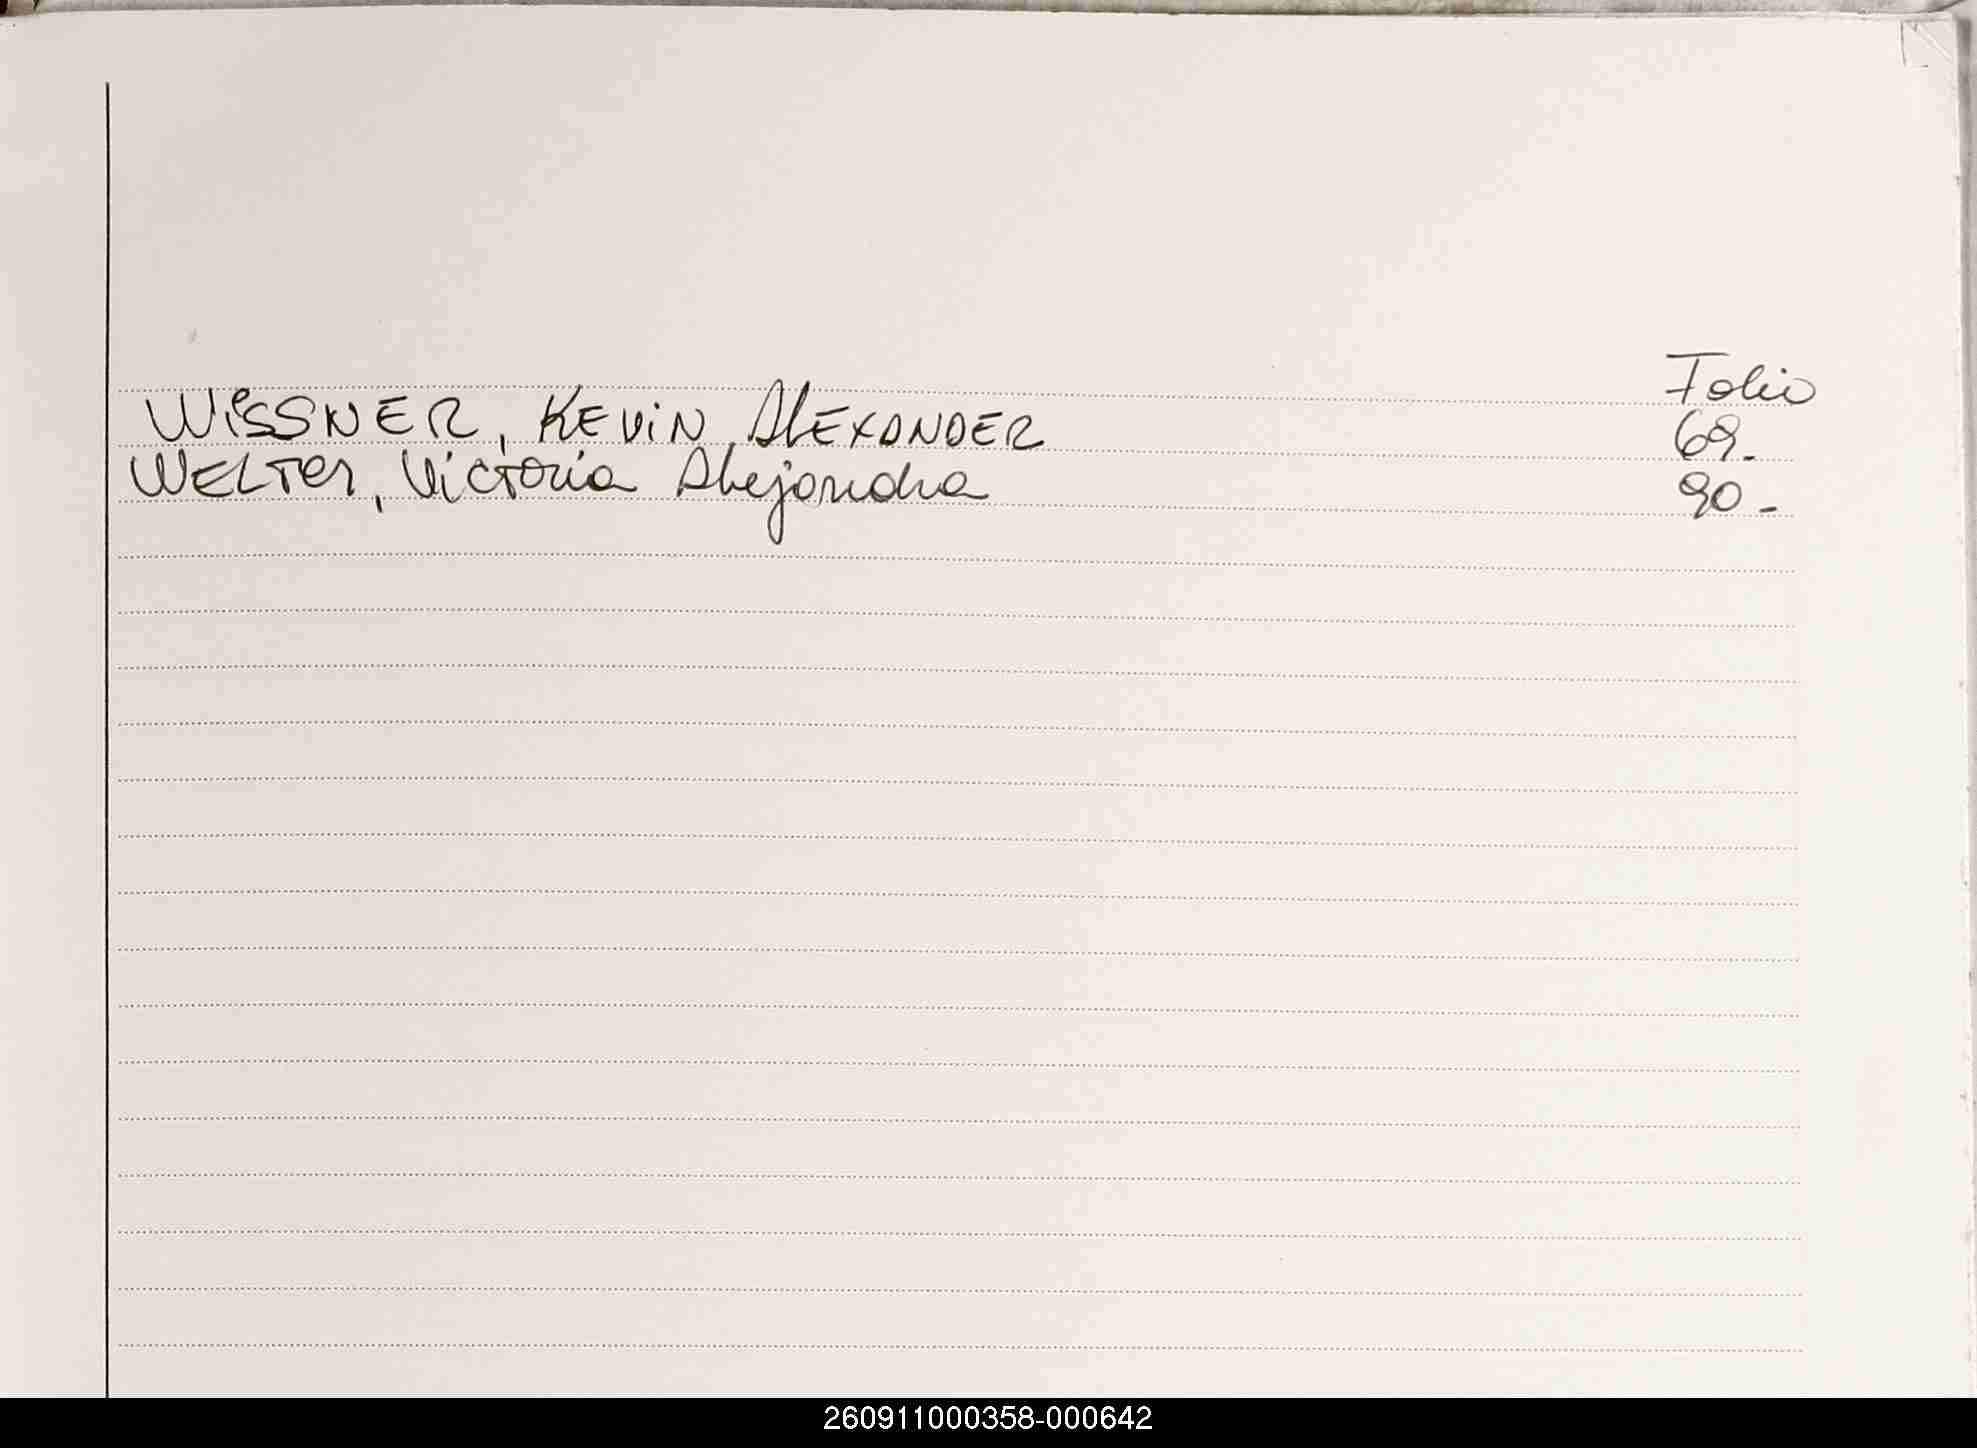 Folio
WISSNER, KEVIN ALEXANDER 69.-
WELTER, Victoria Alejandra 90.-
260911000358-000642